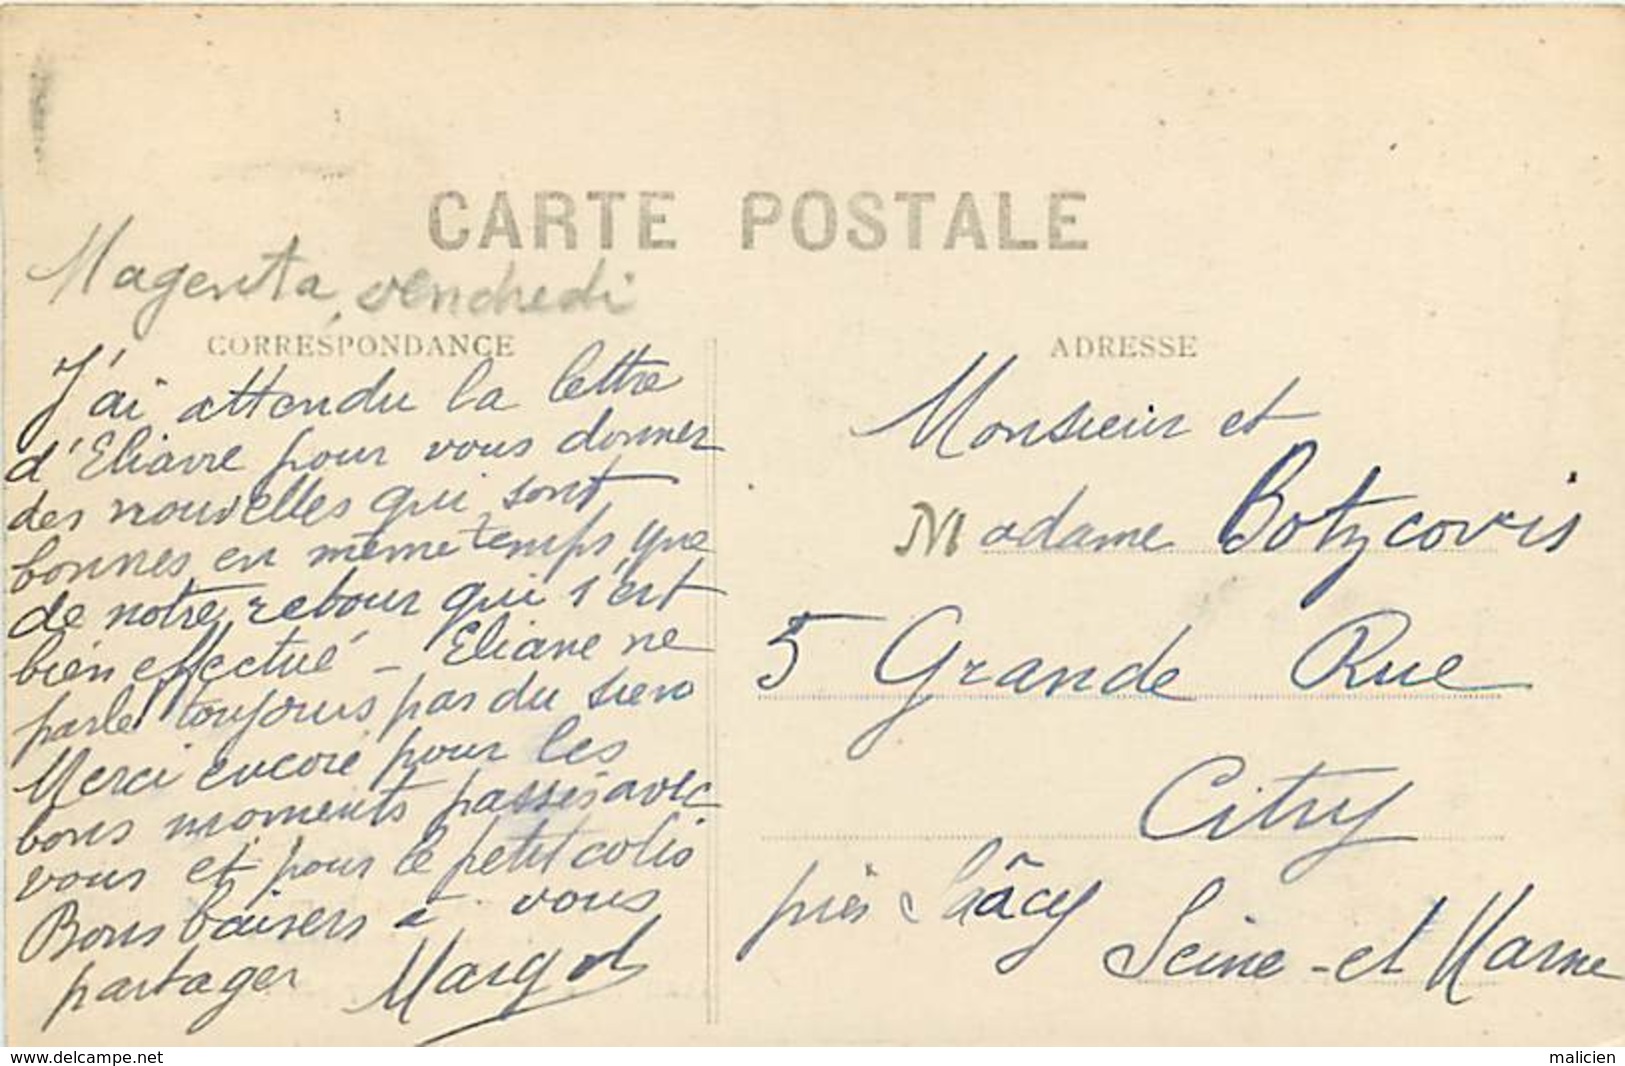 CARTE POSTALE
Magenta, vendredi
CORRESPONDANCE
J'ai attendu la lettre
d'Eliane pour vous donner
des nouvelles qui sont
bonnes en même temps que
de notre retour qui s'est
bien effectué - Eliane ne
parle toujours pas du sien
Merci encore pour les
bons moments passés avec
vous et pour le petit colis
Bons baisers à vous
partager Margot
ADRESSE
Monsieur et
Madame Botzcovis
5 Grande Rue
Citry
près Saâcy
Seine-et Marne
www.delcampe.net
malicien